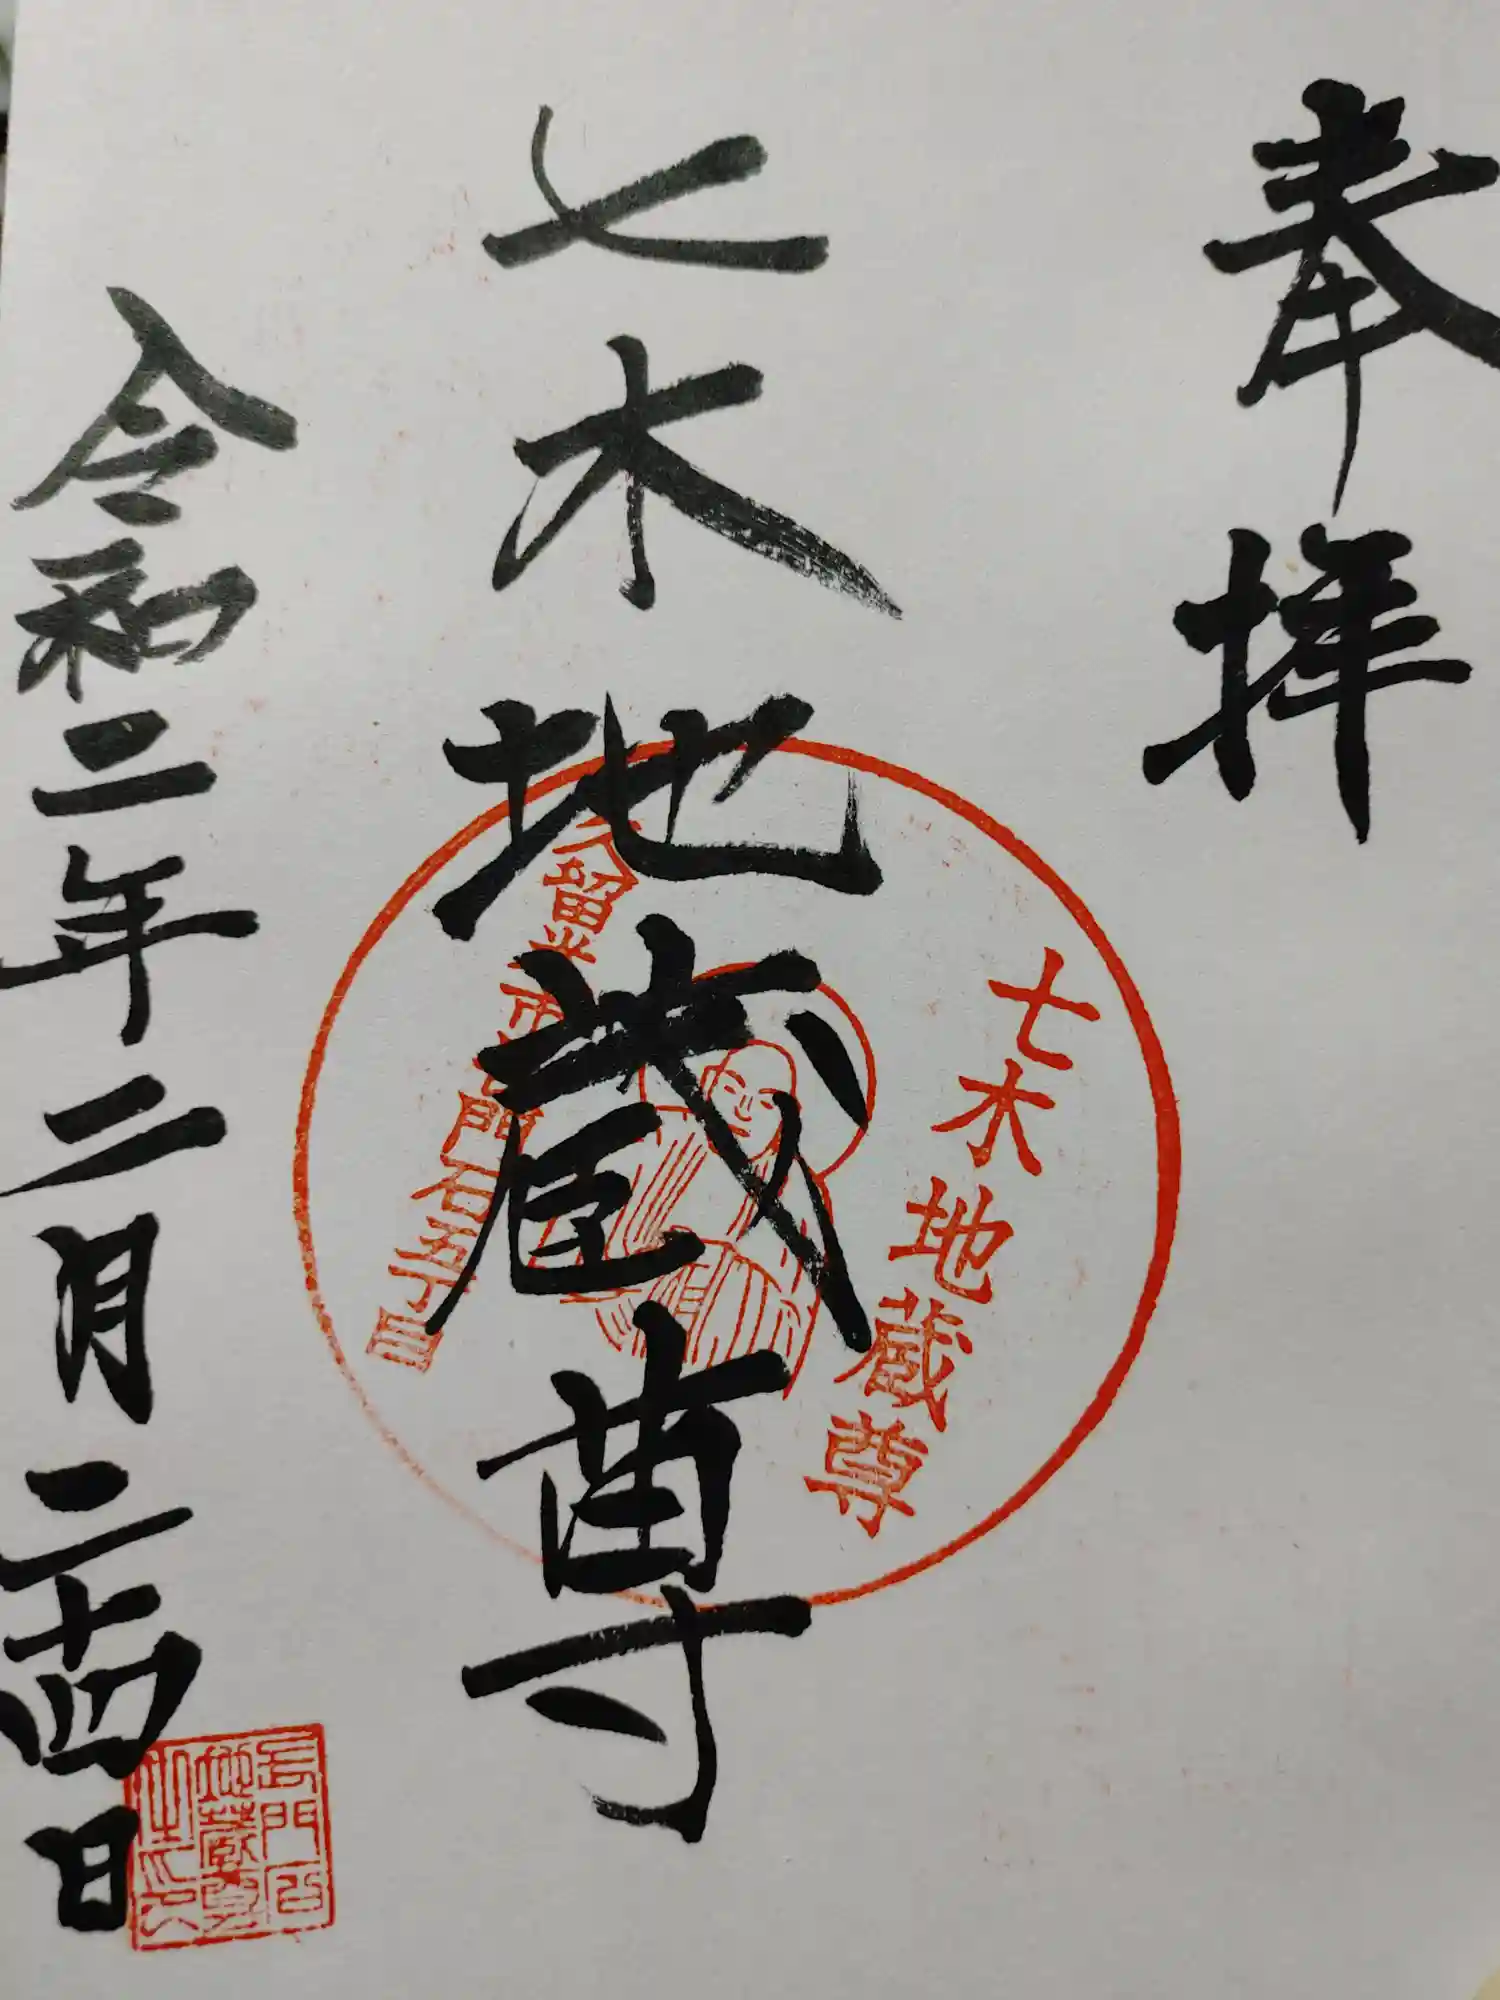 奉拝
七木地蔵尊
令和二年二月二十四日
七木地蔵尊
久留米市善門石五丁目